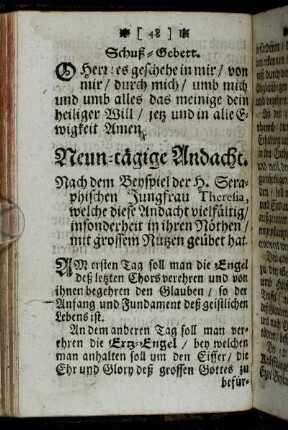 ❋ [ 48 ] ❋
Schuß-Gebett.
O Herr: es geschehe in mir / von
mir / durch mich / umb mich
und umb alles das meinige dein
heiliger Will / jetz und in alle E-
wigkeit Amen.
Neun-tägige Andacht.
Nach dem Beyspiel der H. Sera-
phischen Jungfrau Theresia,
welche diese Andacht vielfältig /
insonderheit in ihren Nöthen /
mit grossem Nutzen geübet hat.
AM ersten Tag soll man die Engel
deß letzten Chors verehren und von
ihnen begehren den Glauben / so der
Anfang und Fundament deß geistlichen
Lebens ist.
An dem anderen Tag soll man ver-
ehren die Ertz-Engel / bey welchen
man anhalten soll um den Eiffer / die
Ehr und Glory deß grossen Gottes zu
beför-